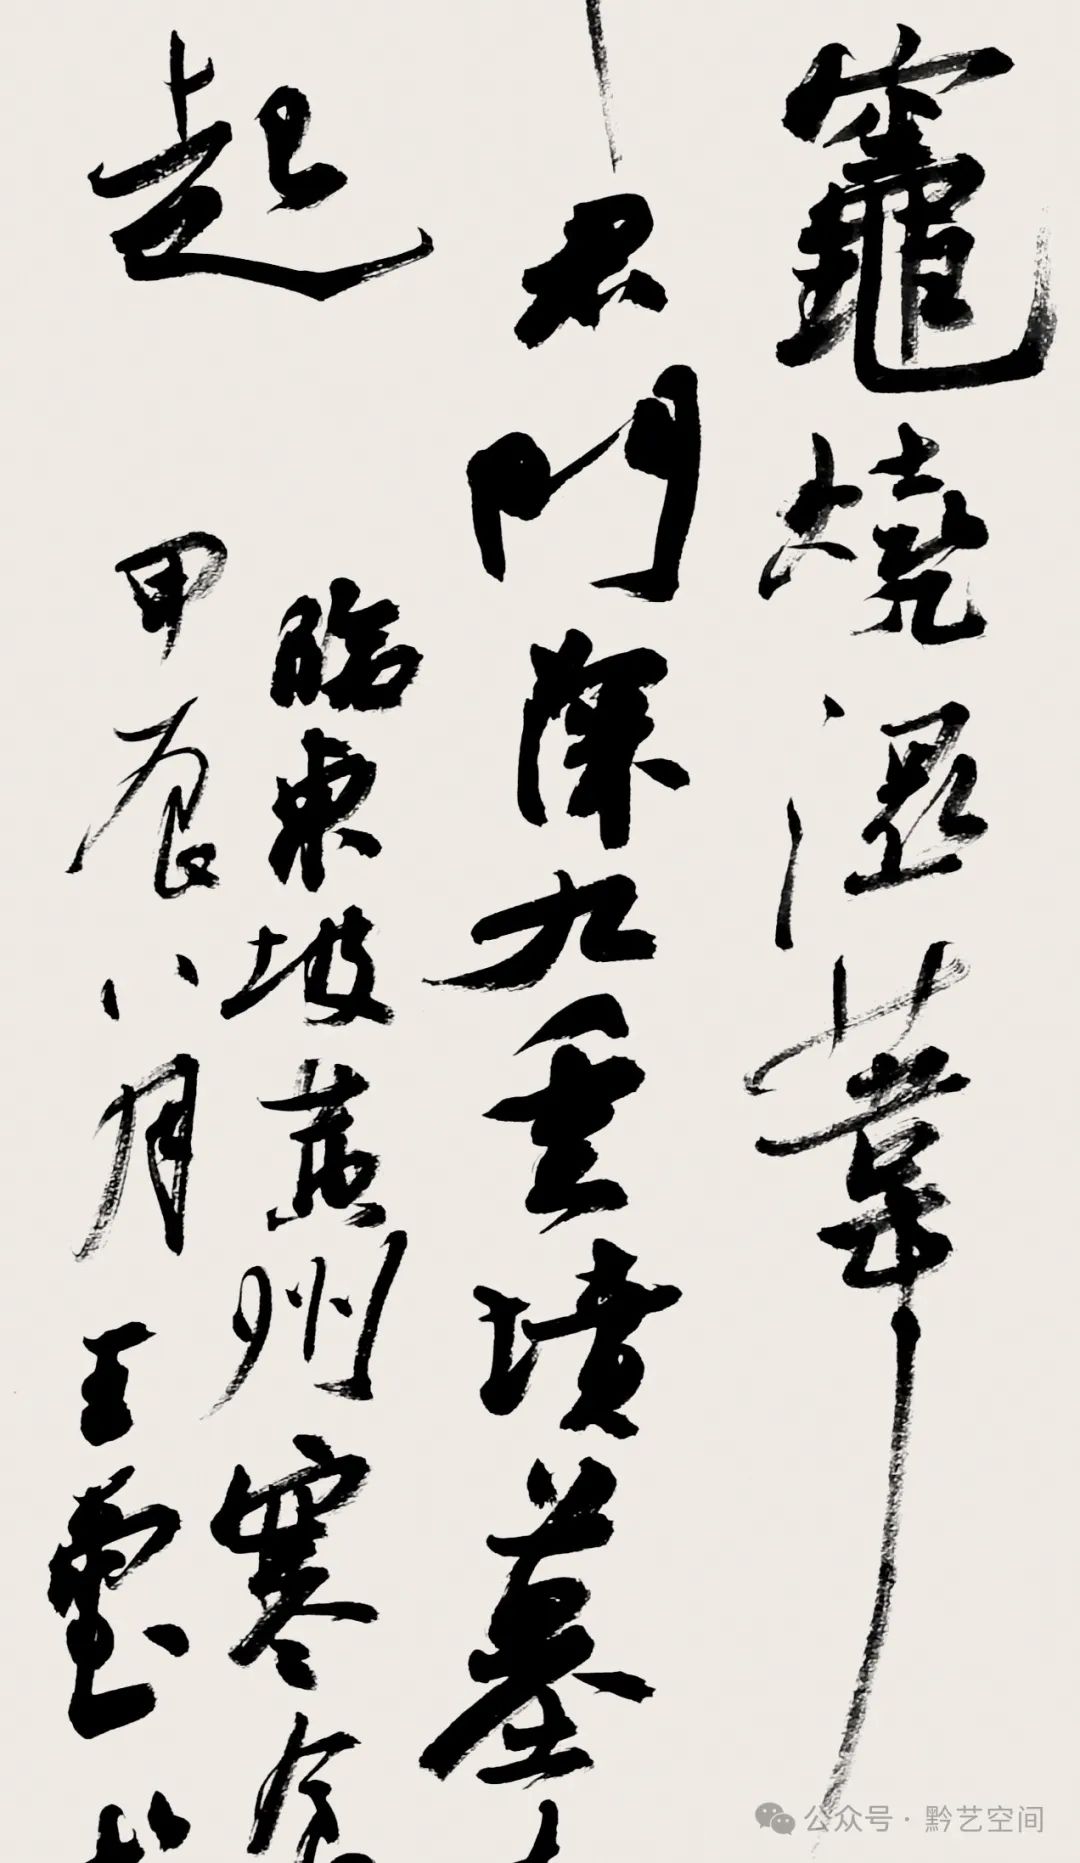 竈燒濕葦
君門深九重墳墓
起
臨東坡黃州寒食
甲辰八月王璽
公众号·黔艺空间